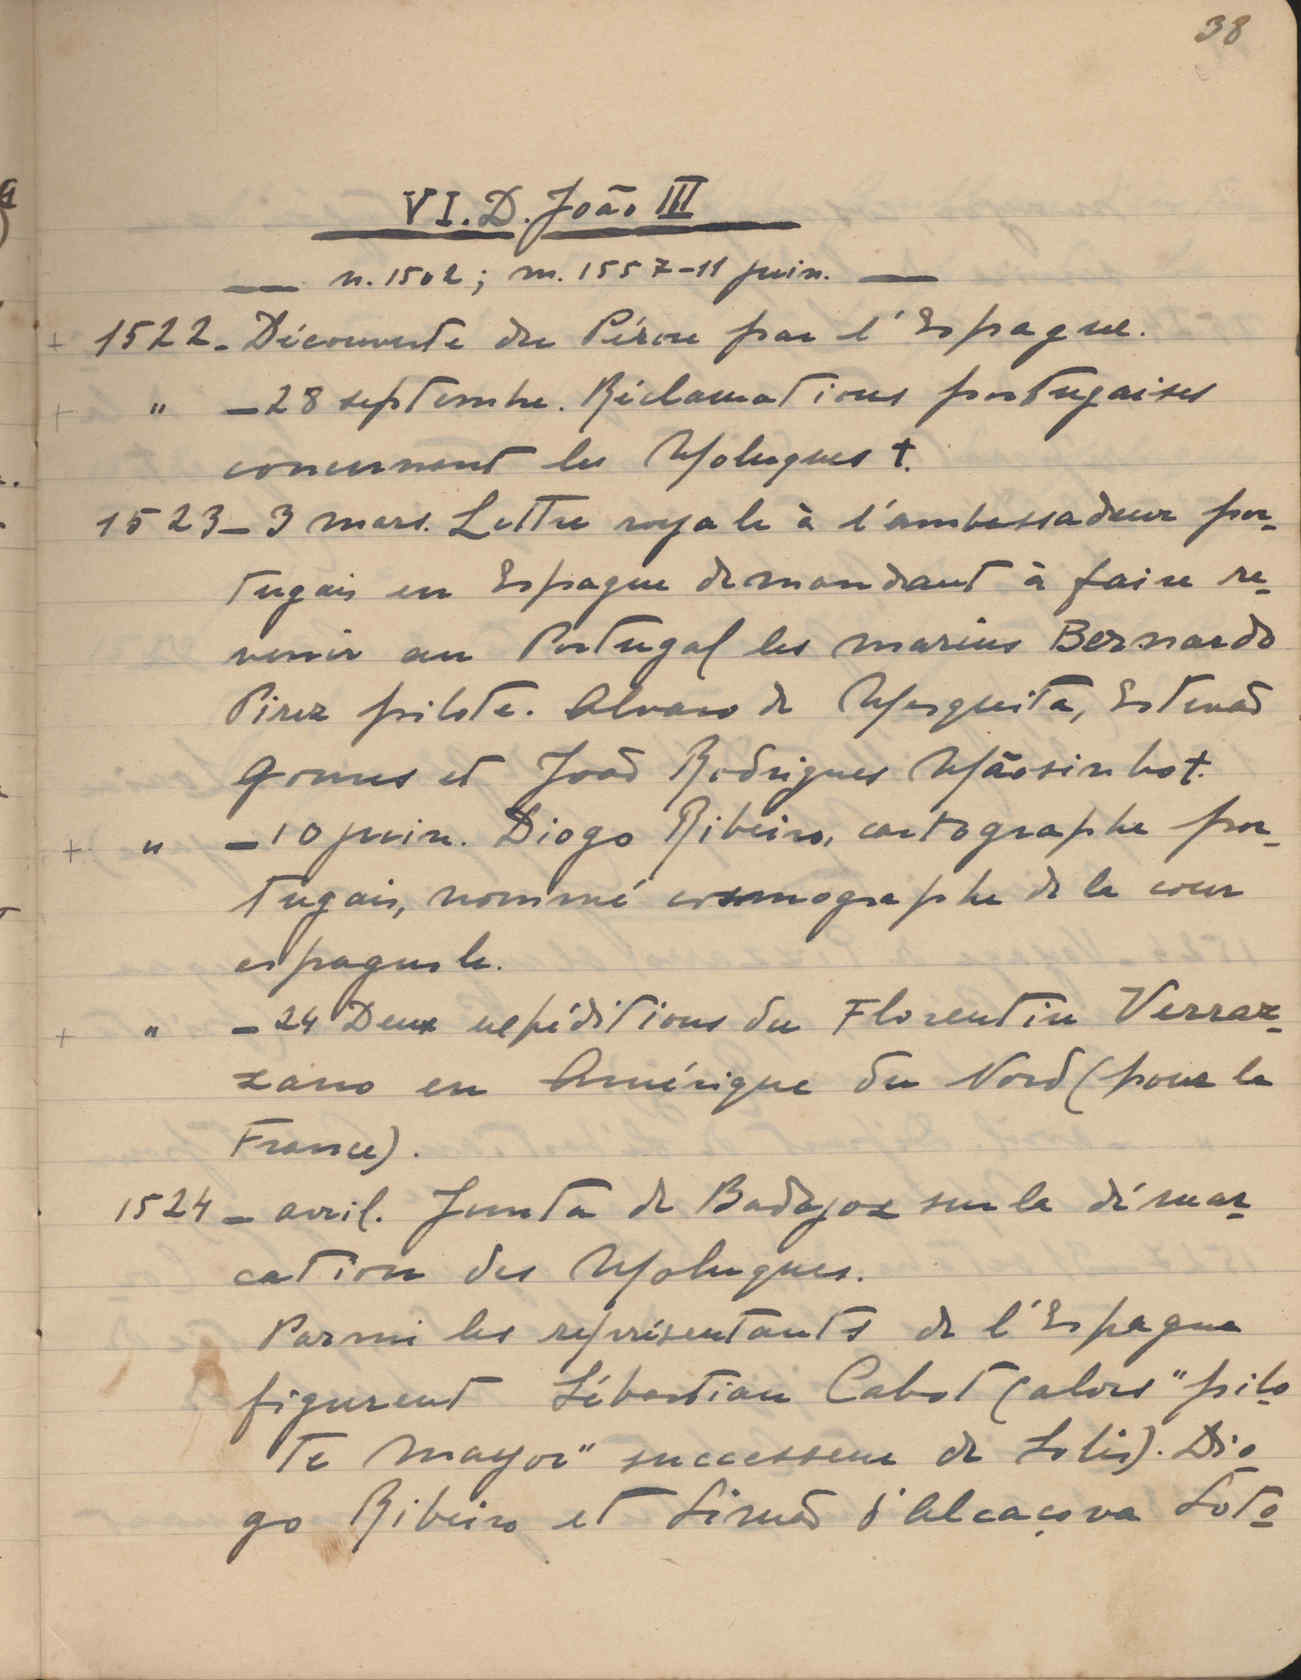 38
VI. D. João III
— n. 1502 ; m. 1557-11 juin. —
+ 1522 - Découverte du Pérou par l'Espagne.
+ " - 28 septembre. Réclamations portugaises
concernant les Moluques †.
1523 - 3 mars. Lettre royale à l'ambassadeur por-
tugais en Espagne demandant à faire re-
venir au Portugal les marins Bernardo
Pirez pilote. Alvaro de Mesquita, Estevão
Gomes et João Rodrigues Mãosinho †.
+ " - 10 juin. Diogo Ribeiro, cartographe por-
tugais, nommé cosmographe de la cour
espagnole.
+ " - 24 Deux expéditions du Florentin Verraz-
zano en Amérique du Nord (pour la
France).
1524 - avril. Junta de Badajoz sur la démar-
cation des Moluques.
Parmi les représentants de l'Espagne
figurent Sébastian Cabot (alors "pilo-
te mayor" successeur de Solis). Dio-
go Ribeiro et Simão d'Alcaçova Soto-